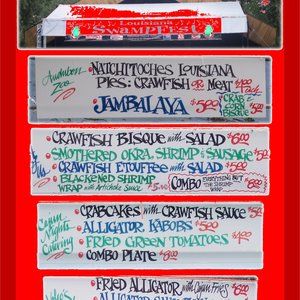 Louisiana
SWAMPFEST
Audubon
Zoo
• NATCHITOCHES LOUISIANA
PIES: CRAWFISH OR MEAT $4.00
• JAMBALAYA $5.00
CRAB &
CORN
BISQUE
• CRAWFISH BISQUE with SALAD $6.00
• SMOTHERED OKRA, SHRIMP & SAUSAGE
• CRAWFISH ETOUFFEE with SALAD
• BLACKENED SHRIMP
WRAP with Artichoke Sauce
COMBO EVERYTHING BUT
THE SHRIMP
WRAP $8.00
Cajun
Nights
Catering
• CRABCAKES with CRAWFISH SAUCE
• ALLIGATOR KABOBS $5.00
• FRIED GREEN TOMATOES
• COMBO PLATE $8.00
• FRIED ALLIGATOR with Cajun Fries